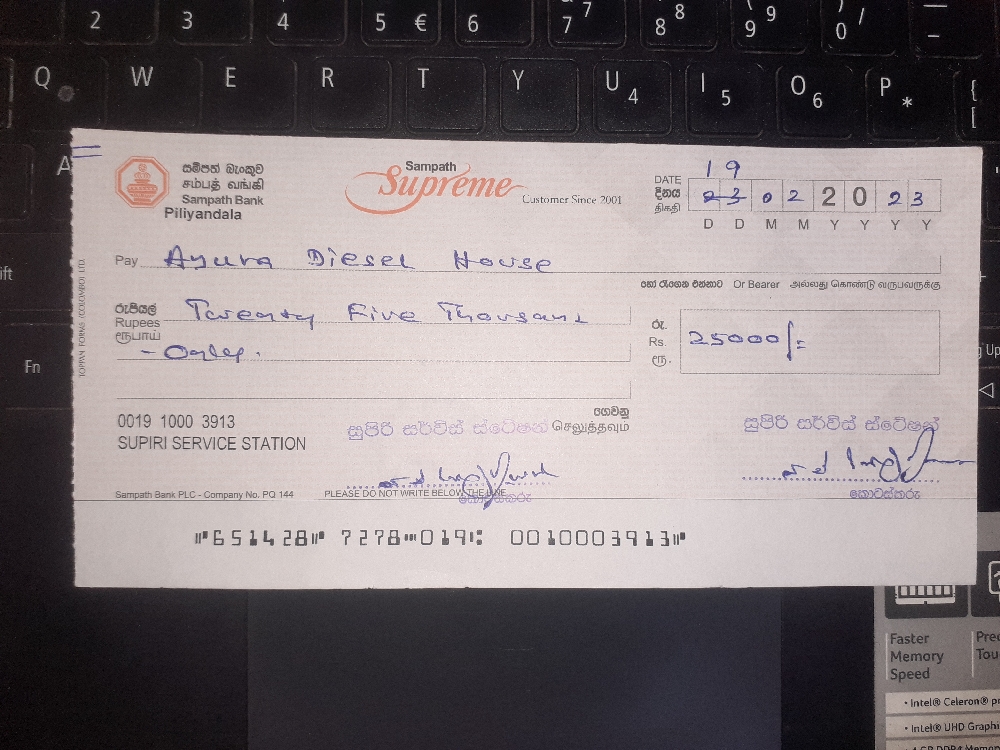 2 3 4 5 € 6 7 7 8 8 9 9 0 /
Q W E R T Y U 4 I 5 O 6 P * { [
A
සම්පත් බැංකුව
சம்பத் வங்கி
Sampath Bank
Piliyandala
Sampath
Supreme
Customer Since 2001
19
DATE
දිනය
திகதி
23 02 2023
D D M M Y Y Y Y
Pay Ayura Diesel House
හෝ රැගෙන එන්නාට Or Bearer அல்லது கொண்டு வருபவருக்கு
රුපියල්
Rupees
ரூபாய்
Twenty Five Thousand
- Only.
රු.
Rs.
ரூ.
25000/=
TOPPAN FORMS (COLOMBO) LTD.
0019 1000 3913
SUPIRI SERVICE STATION
ගෙවනු
செலுத்தவும்
සුපිරි සර්විස් ස්ටේෂන්
සුපිරි සර්විස් ස්ටේෂන්
Sampath Bank PLC - Company No. PQ 144
PLEASE DO NOT WRITE BELOW THE LINE
651428 7278 019 0010003913
ift
Fn
Up
Faster
Memory
Speed
• Intel® Celeron®
• Intel® UHD Graphi